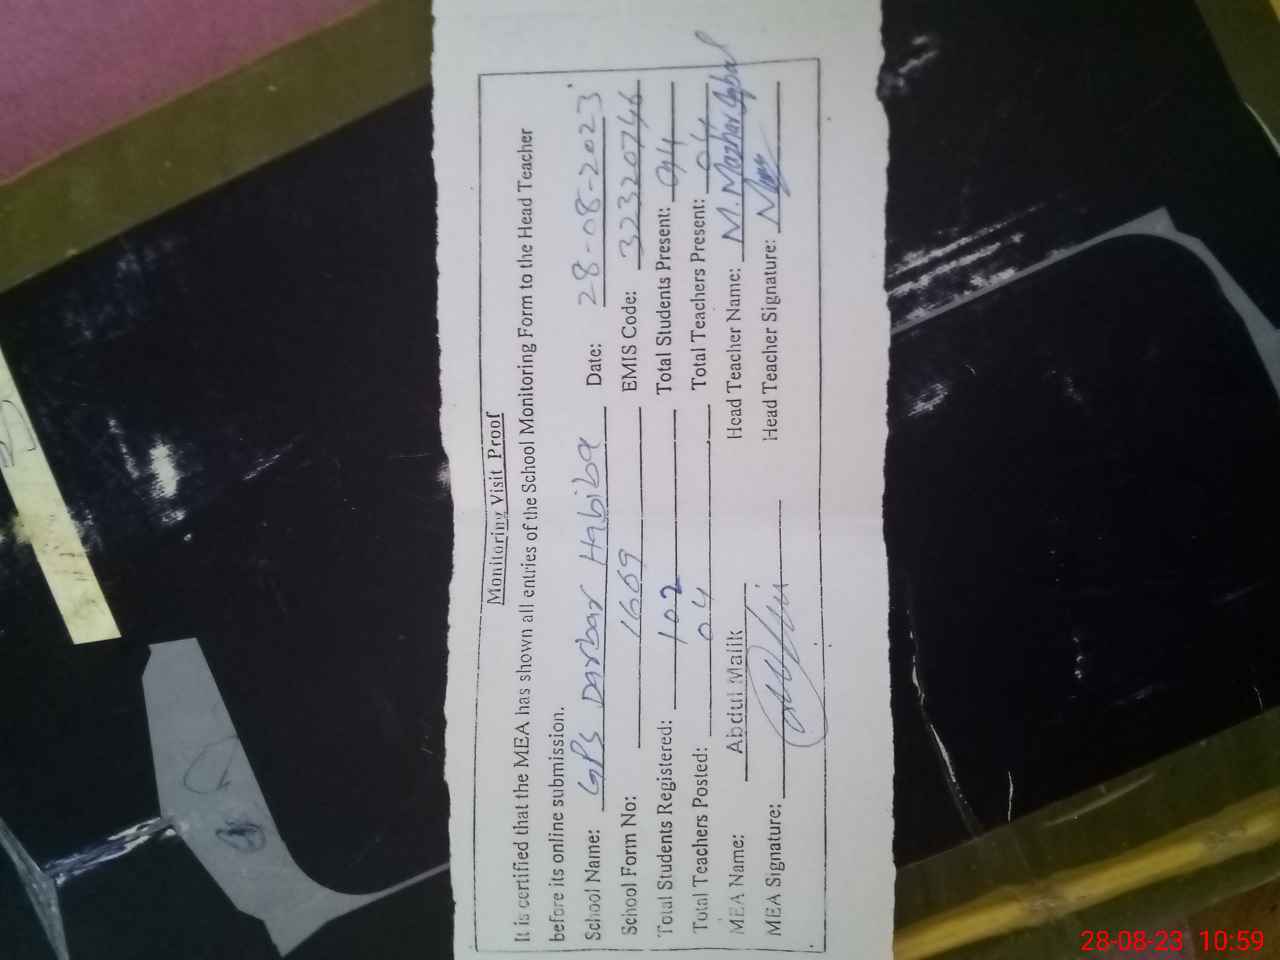 Monitoring Visit Proof
It is certified that the MEA has shown all entries of the School Monitoring Form to the Head Teacher
before its online submission.
School Name: GPS Darbar Habiba Date: 28-08-2023
School Form No: 1669 EMIS Code: 32320746
Total Students Registered: 102 Total Students Present: 94
Total Teachers Posted: 04 Total Teachers Present: 04
MEA Name: Abdul Malik Head Teacher Name: M. Mazhar Iqbal
MEA Signature: Head Teacher Signature:
28-08-23 10:59